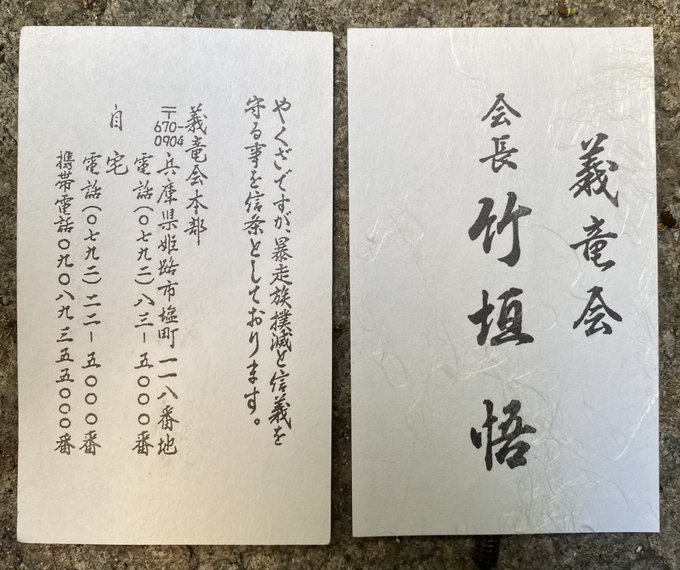 義竜会
会長 竹垣 悟
やくざですが、暴走族撲滅と信義を
守る事を信条としております。
義竜会本部
〒670-0904 兵庫県姫路市塩町一一八番地
電話(〇七九二)八三ー五〇〇〇番
自宅
電話(〇七九二)二二ー五〇〇〇番
携帯電話〇九〇八九三五五〇〇〇番